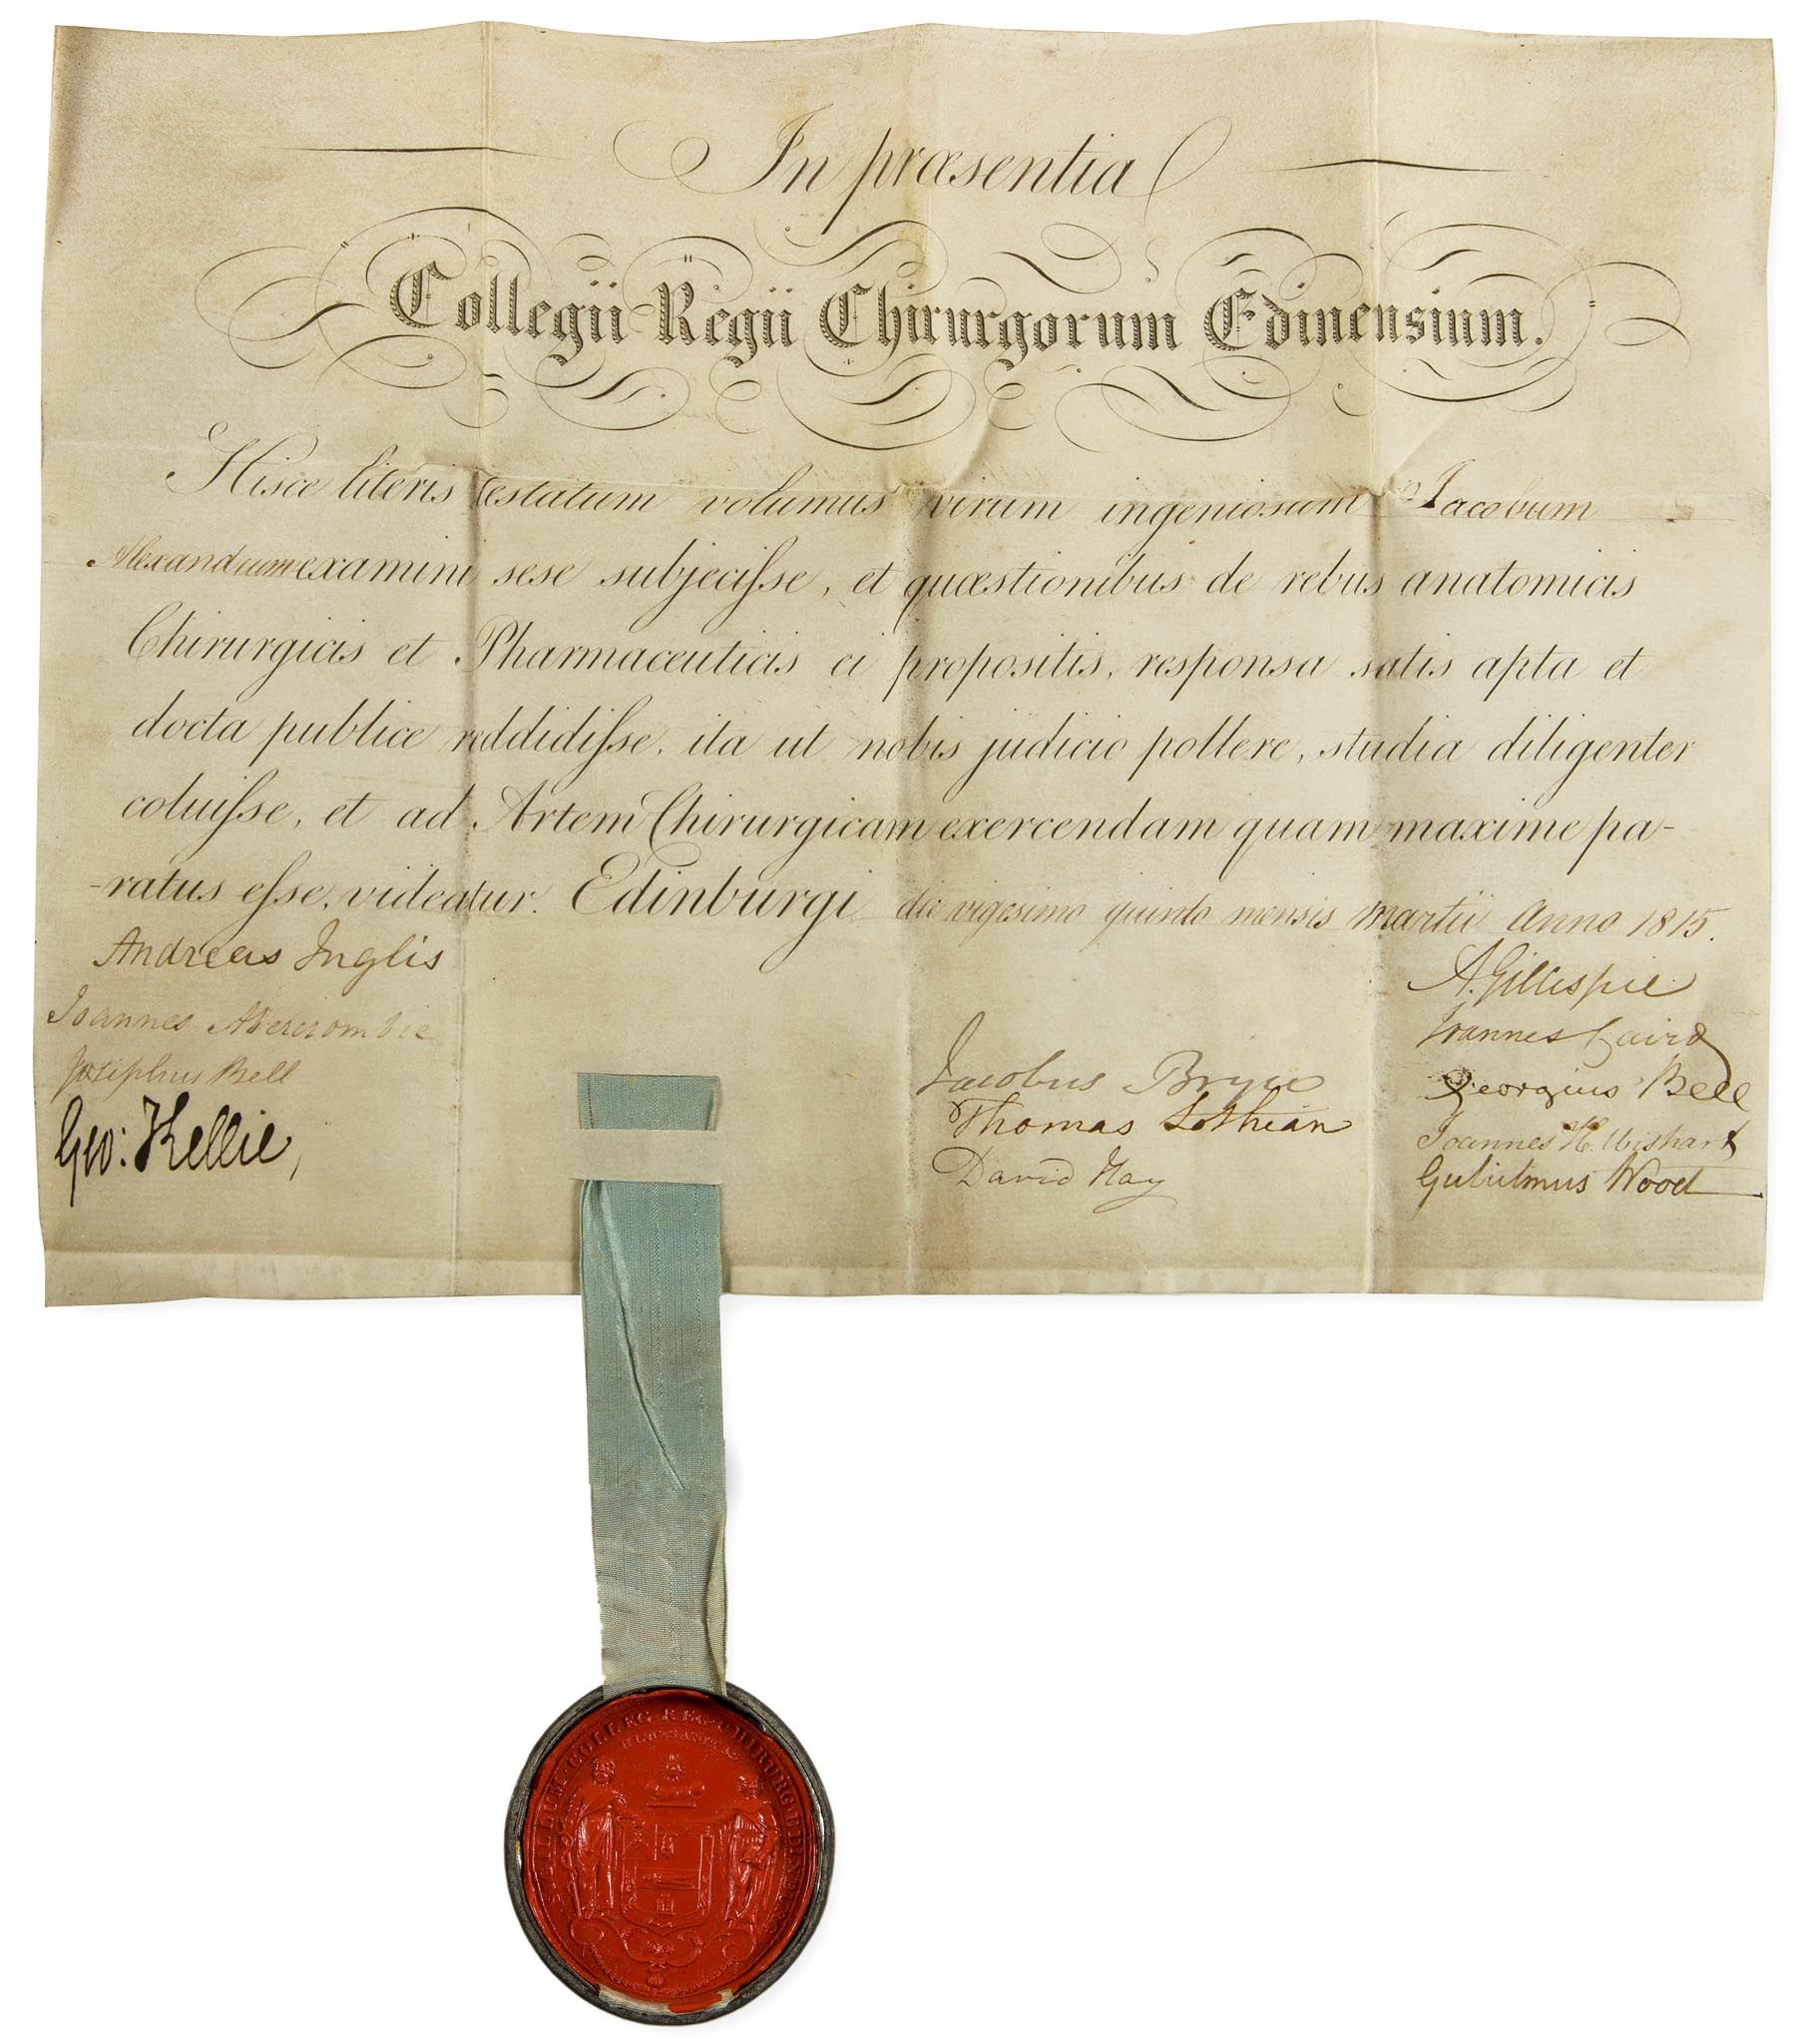 In præsentia
Collegii Regii Chirurgorum Edinensium.
Hisce literis testatum volumus virum ingeniosum Jacobum
Alexandrum examini sese subjecisse, et quæstionibus de rebus anatomicis
Chirurgicis et Pharmaceuticis ei propositis, responsa satis apta et
docta publice reddidisse, ita ut nobis judicio pollere, studia diligenter
coluisse, et ad Artem Chirurgicam exercendam quam maxime pa-
-ratus esse, videatur. Edinburgi die vigesimo quinto mensis Martii Anno 1815.
Andreas Inglis
Joannes Abercrombie
Josephus Bell
Geo: Kellie,
Jacobus Bryce
Thomas Lothian
David Hay
A. Gillespie
Joannes Gaird
Georgius Bell
Joannes H. Wishart
Gulielmus Wood
SIGILLUM COLLEG REG CHIRURG EDINEN